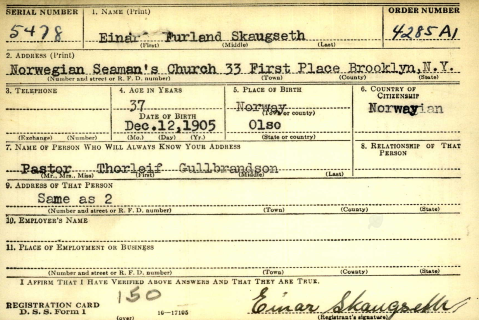 SERIAL NUMBER 1. NAME (Print) ORDER NUMBER
5478 Einar Furland Skaugseth 4285A1
(First) (Middle) (Last)
2. ADDRESS (Print)
Norwegian Seaman's Church 33 First Place Brooklyn,N.Y.
(Number and street or R. F. D. number) (Town) (County) (State)
3. TELEPHONE 4. AGE IN YEARS 5. PLACE OF BIRTH 6. COUNTRY OF CITIZENSHIP
37 Norway Norwayian
(Town or county)
DATE OF BIRTH
Dec.12,1905 Olso
(Exchange) (Number) (Mo.) (Day) (Yr.) (State or country)
7. NAME OF PERSON WHO WILL ALWAYS KNOW YOUR ADDRESS 8. RELATIONSHIP OF THAT PERSON
Pastor Thorleif Gullbrandson
(Mr., Mrs., Miss) (First) (Middle) (Last)
9. ADDRESS OF THAT PERSON
Same as 2
(Number and street or R. F. D. number) (Town) (County) (State)
10. EMPLOYER'S NAME
11. PLACE OF EMPLOYMENT OR BUSINESS
(Number and street or R. F. D. number) (Town) (County) (State)
I AFFIRM THAT I HAVE VERIFIED ABOVE ANSWERS AND THAT THEY ARE TRUE.
150
REGISTRATION CARD
D. S. S. Form 1 (over) 16—17105 Einar Skaugseth
(Registrant's signature)